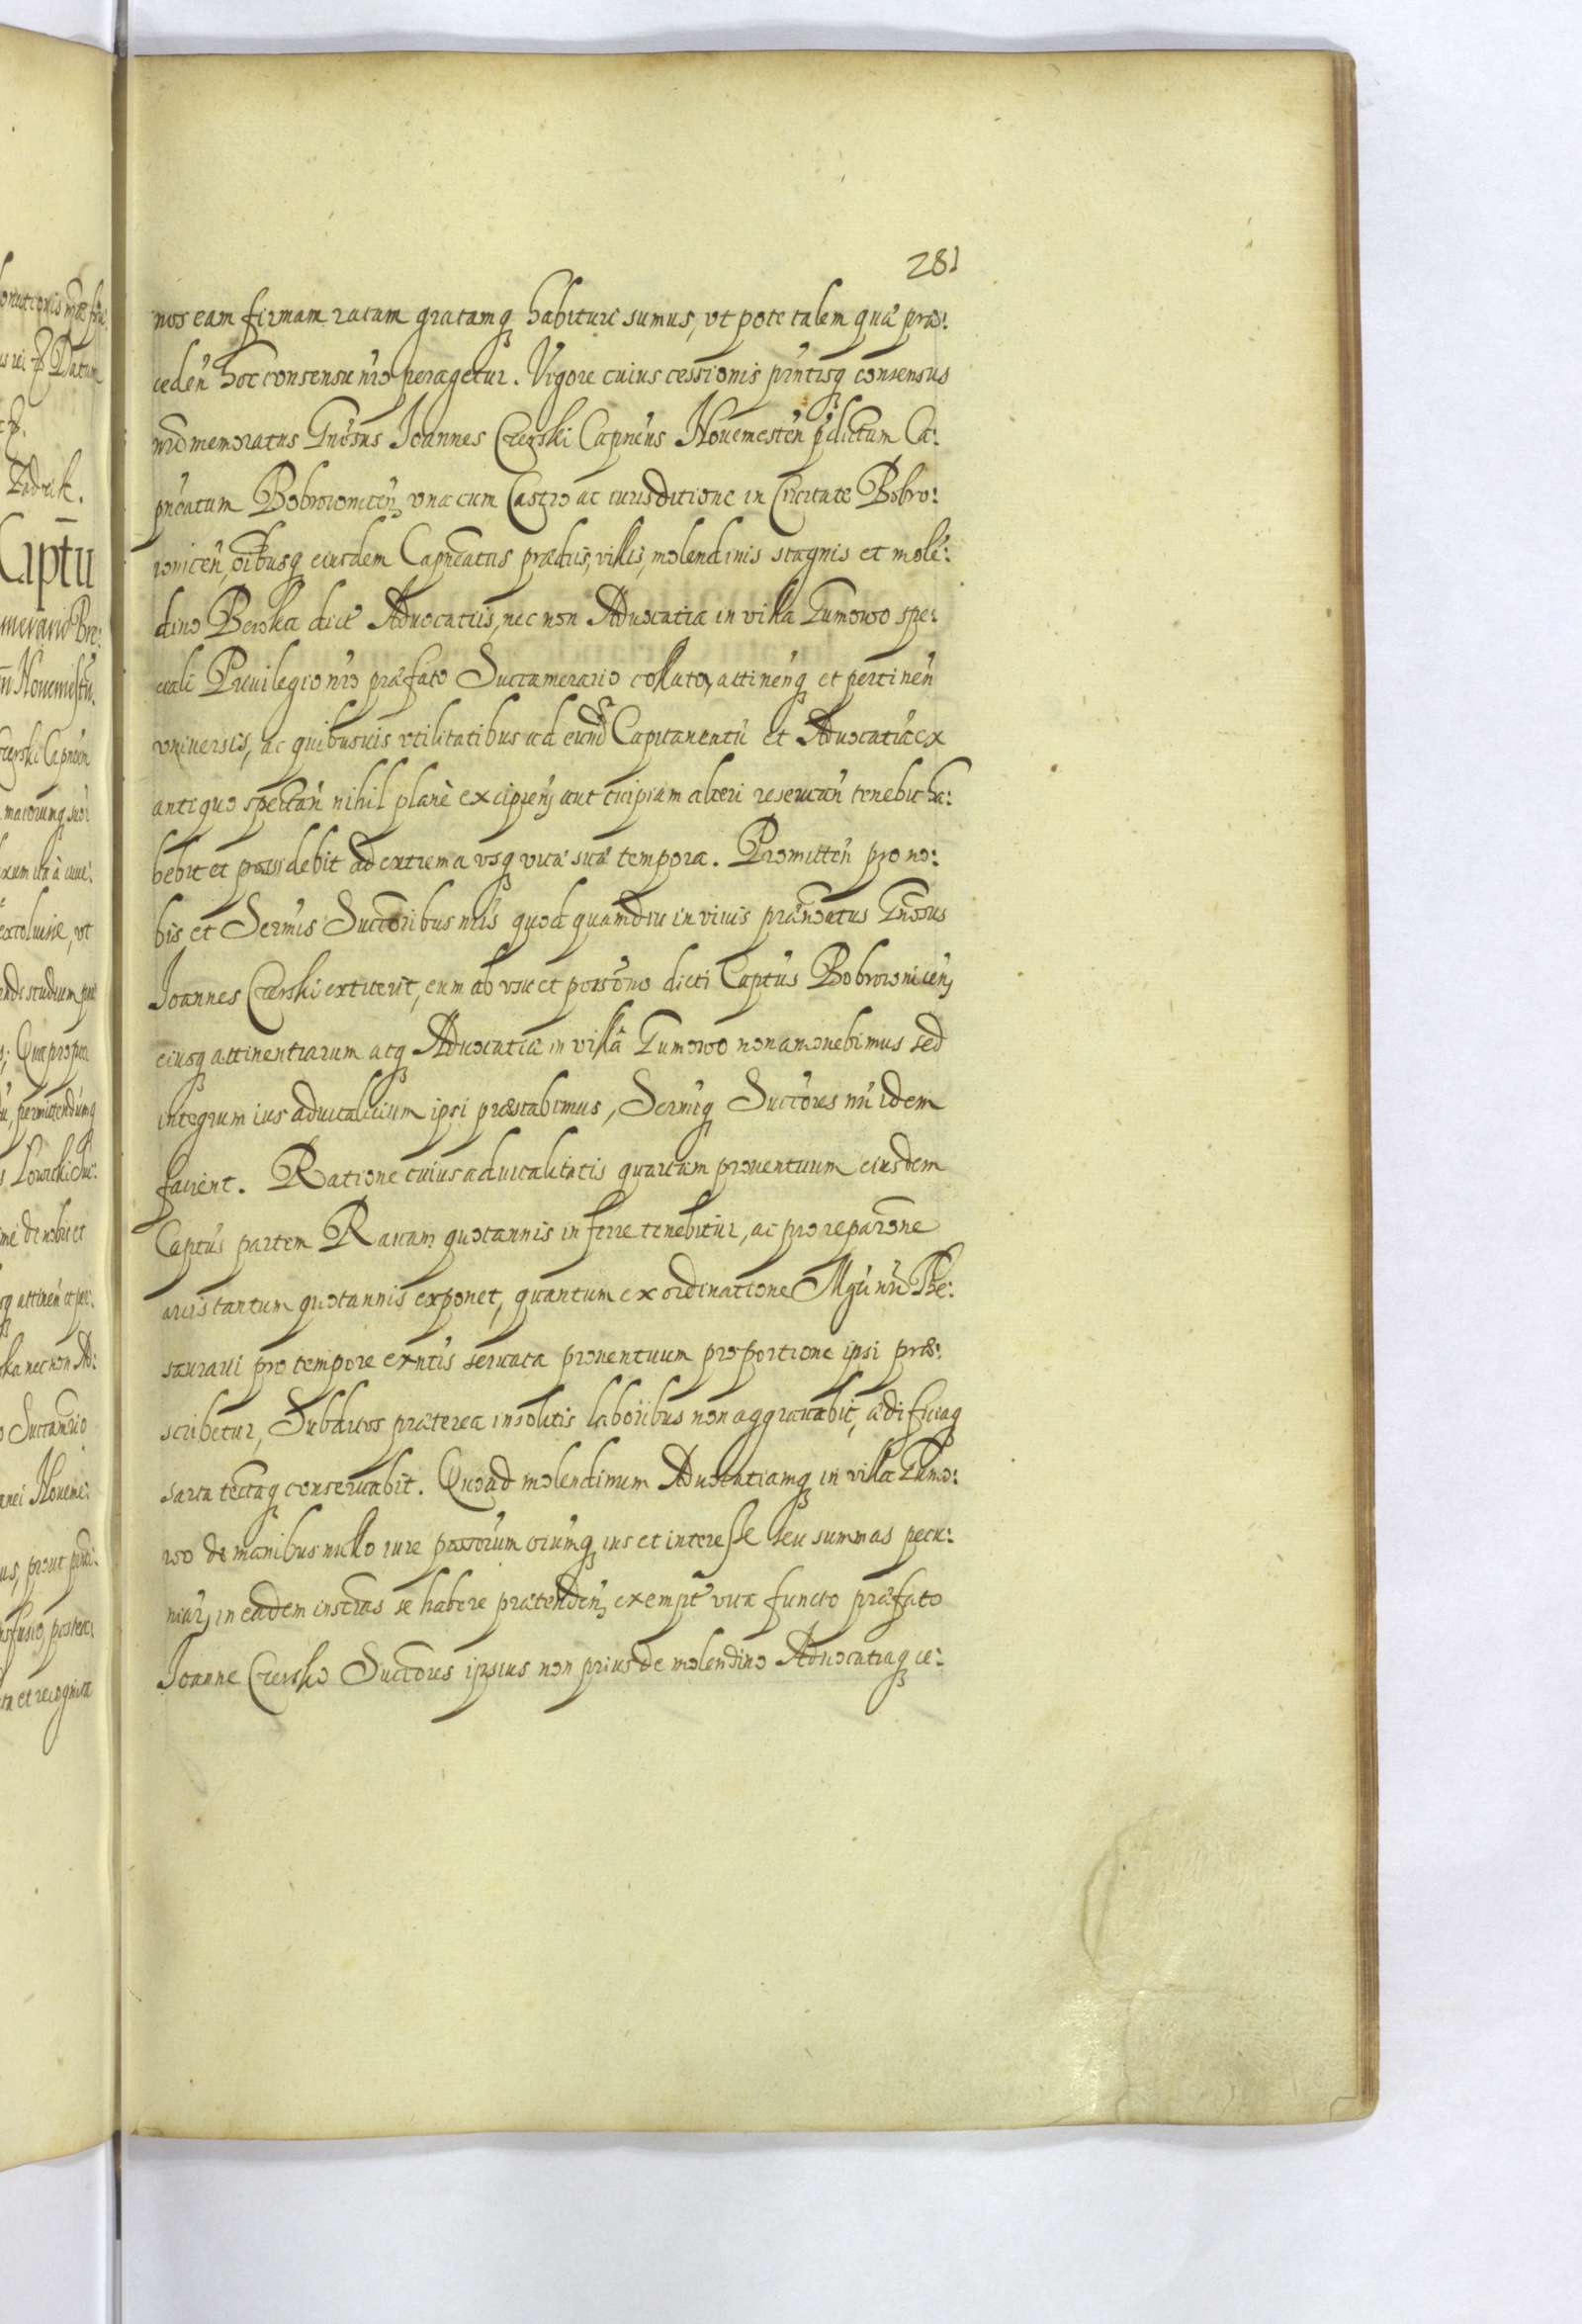 281
nos eam firmam ratam gratamq habituri sumus, vt pote talem quæ præ:
ceden̄ hoc consensu nr̄o peragetur. Vigore cuius cessionis pn̄tisq consensus
nr̄i memoratus Gnōsus Joannes Czerski Capnēus Nouemesten̄ p̄dictum Ca:
pnēatum Bobrowniceń, vna cum Castro ac iurisditione in Ciuitate Bobro:
wniceń, oībusq eiusdem Capnēatus prædiis, villis, molendinis stagnis et molē:
dino Beroka dict̄ Aduocatiis, nec non Aduocatia in villa Tumowo spe:
ciali Priuilegio nr̄o præfato Succamerario collato, attinenq et pertinen̄
vniuersis, ac quibusuis vtilitatibus ad eund̄ Capitaneatū et Aduocatiā ex
antiquo spectan̄ nihil planè excipien̄, aut cuipiam alteri reseruan̄ tenebit ha:
bebit et possidebit ad extrema vsq vitæ suæ tempora. Promitten̄ pro no:
bis et Serm̄is Succōribus nr̄is quod quamdiu in viuis prænōatus Gnōsus
Joannes Czerski extiterit, eum ab vsu et possōne dicti Captūs Bobrowniceń,
eiusq attinentiarum atq Aduocatiæ in villâ Tumowo non amouebimus sed
integrum ius aduitalitium ipsi præstabimus, Serm̄iq Succōres nr̄i idem
facient. Ratione cuius aduitalitatis quartam prouentuum eiusdem
Captūs partem Rauam quotannis inferre tenebitur, ac pro reparōne
arcis tantum quotannis exponet, quantum ex ordinatione Mgci nr̄i The:
saurarii pro tempore exn̄tis seruata prouentuum proportione ipsi præ:
scribetur, Subditos præterea insolitis laboribus non aggrauabit, ædificiaq
sarta tectaq conseruabit. Quoad molendinum Aduocatiamq in villa Tumo:
wo de manibus nullo iure possorūm oiūmq ius et interesse seu summas pecu:
niar, in eadem inscras se habere prætenden̄, exempt̄ vita functo præfato
Joanne Czersko Succōres ipsius non prius de molendino Aduocatiaq ce: